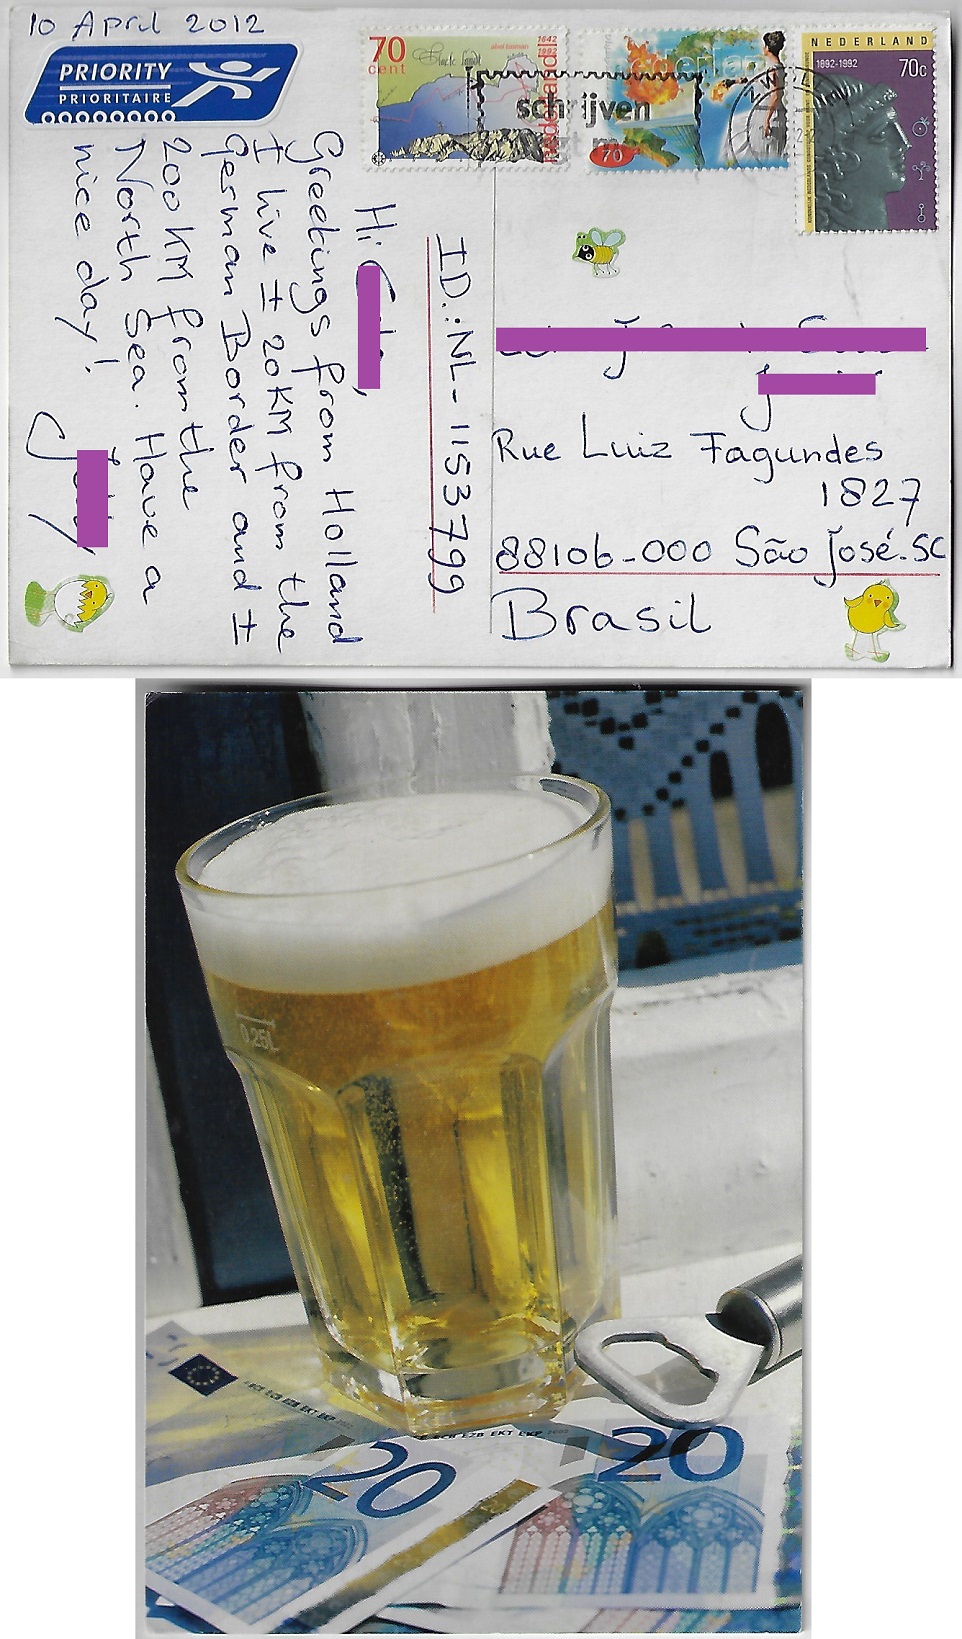 10 April 2012
PRIORITY
PRIORITAIRE
70
cent
abel tasman
1642
1992
nederland
nederland
70
NEDERLAND
1892-1992
70c
schrijven
Hi
Greetings from Holland
I live ± 20KM from the
German Border and ±
200KM from the
North Sea. Have a
nice day!
ID.: NL-1153799
Rue Luiz Fagundes
1827
88106-000 São José.SC
Brasil
0.25L
20
EZB EKT EKP 2002
20